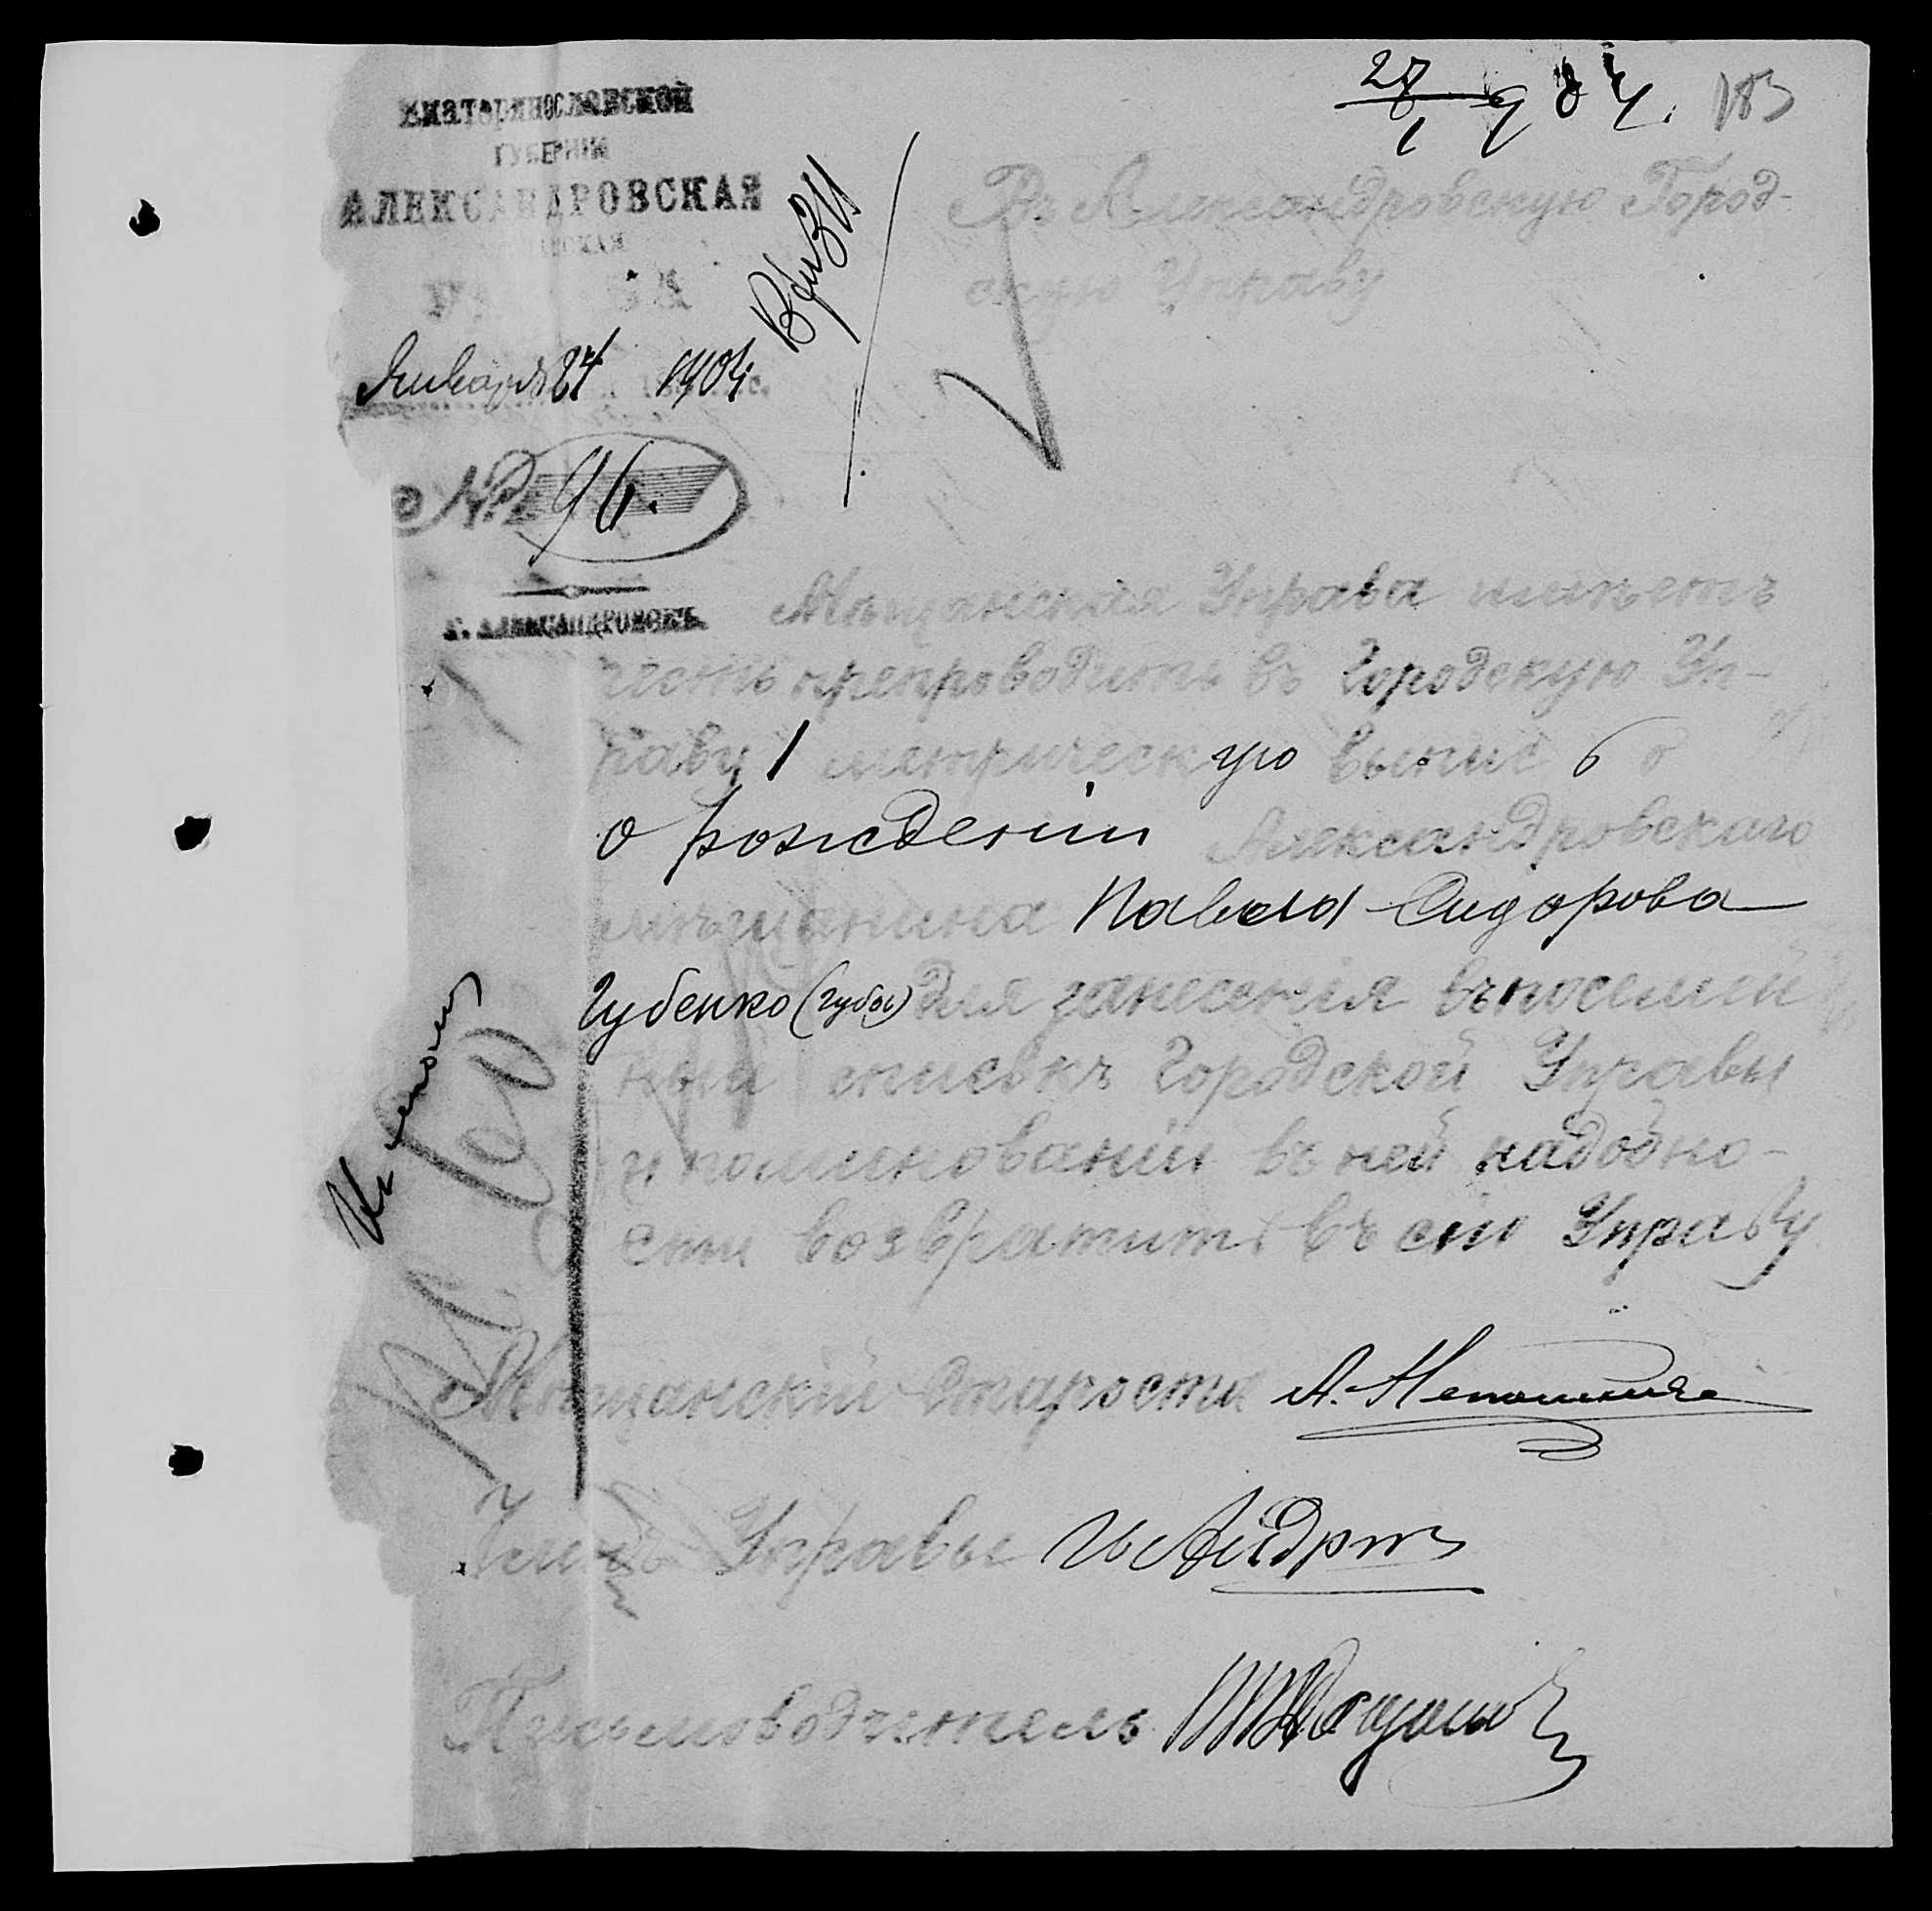 27/1 904. 183
Екатеринославской
ГУБЕРНІИ
АЛЕКСАНДРОВСКАЯ
Января 24 1904
№ 96.
Г. АЛЕКСАНДРОВСКЪ.
Въ Александровскую Город-
скую Управу
Мѣщанская Управа имѣетъ
честь препроводить въ Городскую Уп-
раву 1 метрическую выпис
о рожденіи Александровскаго
мѣщанина Павла Сидорова
Губенко (Губы) для занесенія въ посемей
ный списокъ Городской Управы
и по минованіи въ ней надобно-
сти возвратить въ сію Управу
Мѣщанскій Староста А.
Членъ Управы
Письмоводитель